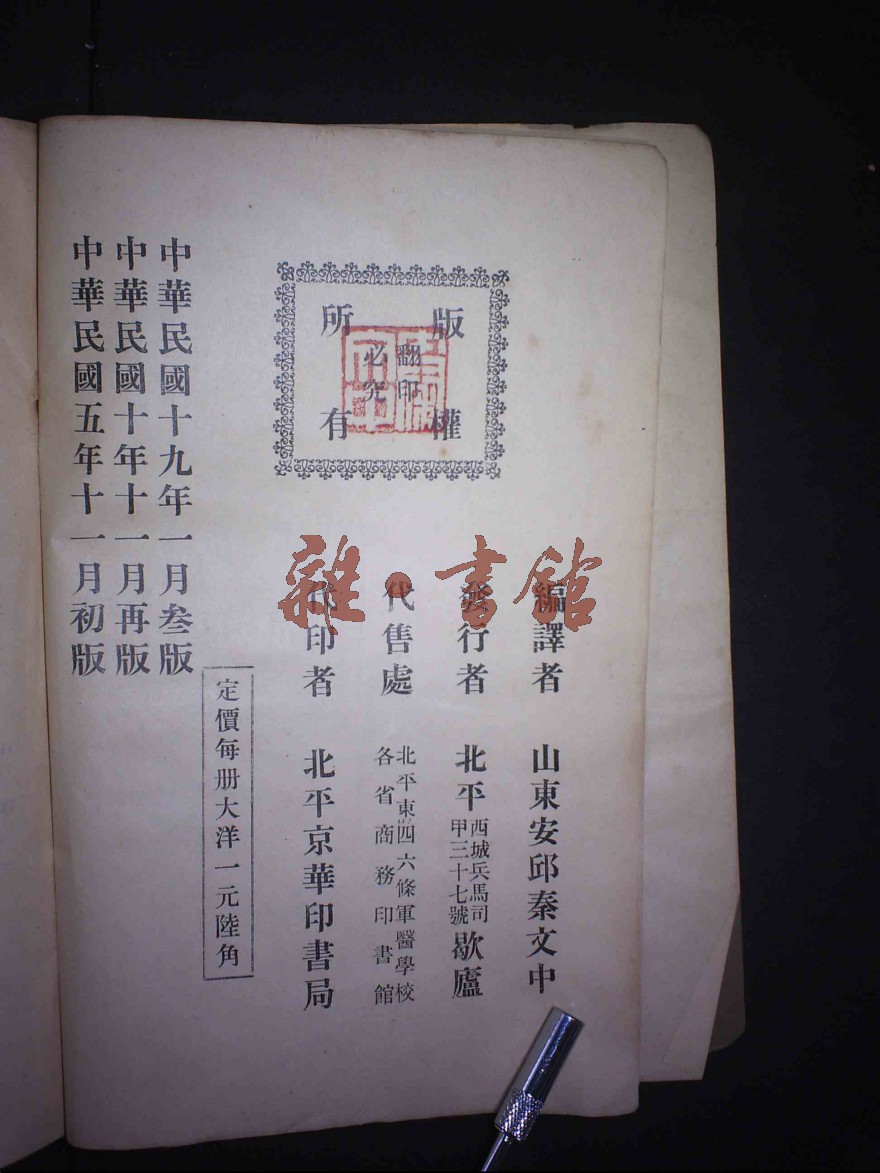 版權
所有
翻印
必究
編譯者 山東安邱秦文中
發行者 北平西城兵馬司甲三十七號歇廬
代售處 北平東四六條軍醫學校
各省商務印書館
代印者 北平京華印書局
定價每册大洋一元陸角
中華民國十九年一月叁版
中華民國十年十一月再版
中華民國五年十一月初版
雜·書館